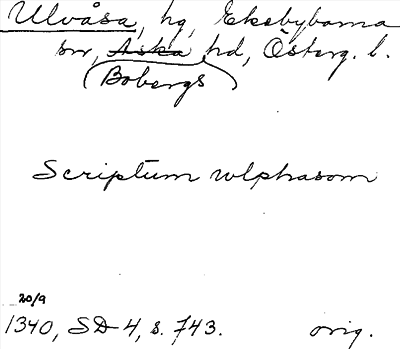 Ulvåsa, hg, Ekebyborna
sn, Aska hd, Österg. l.
(Bobergs)
Scriptum wlphasom
20/9
1340, SD 4, s. 743. orig.